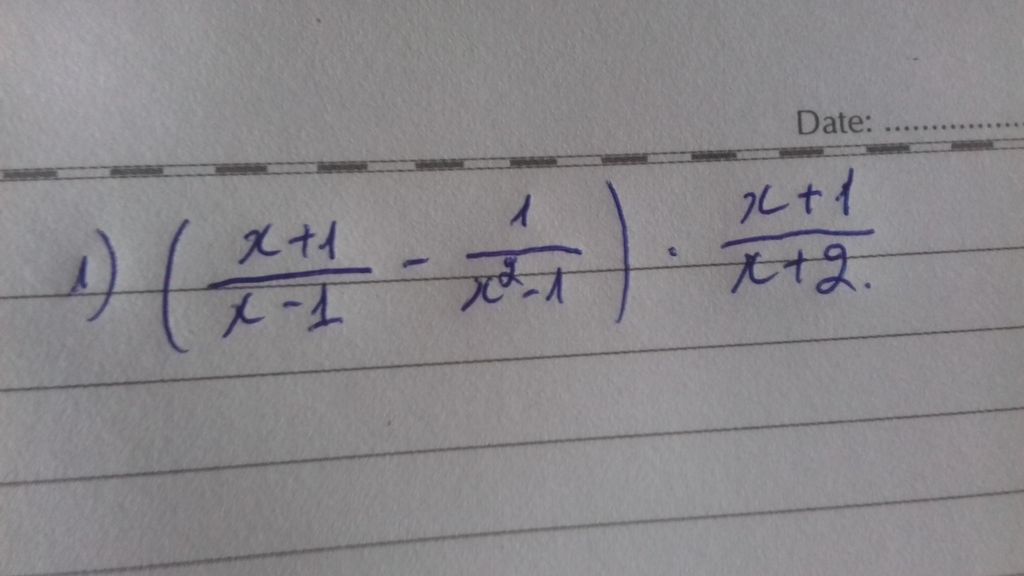 Date: ................
1) ( \frac{x+1}{x-1} - \frac{1}{x^2-1} ) \cdot \frac{x+1}{x+2}.